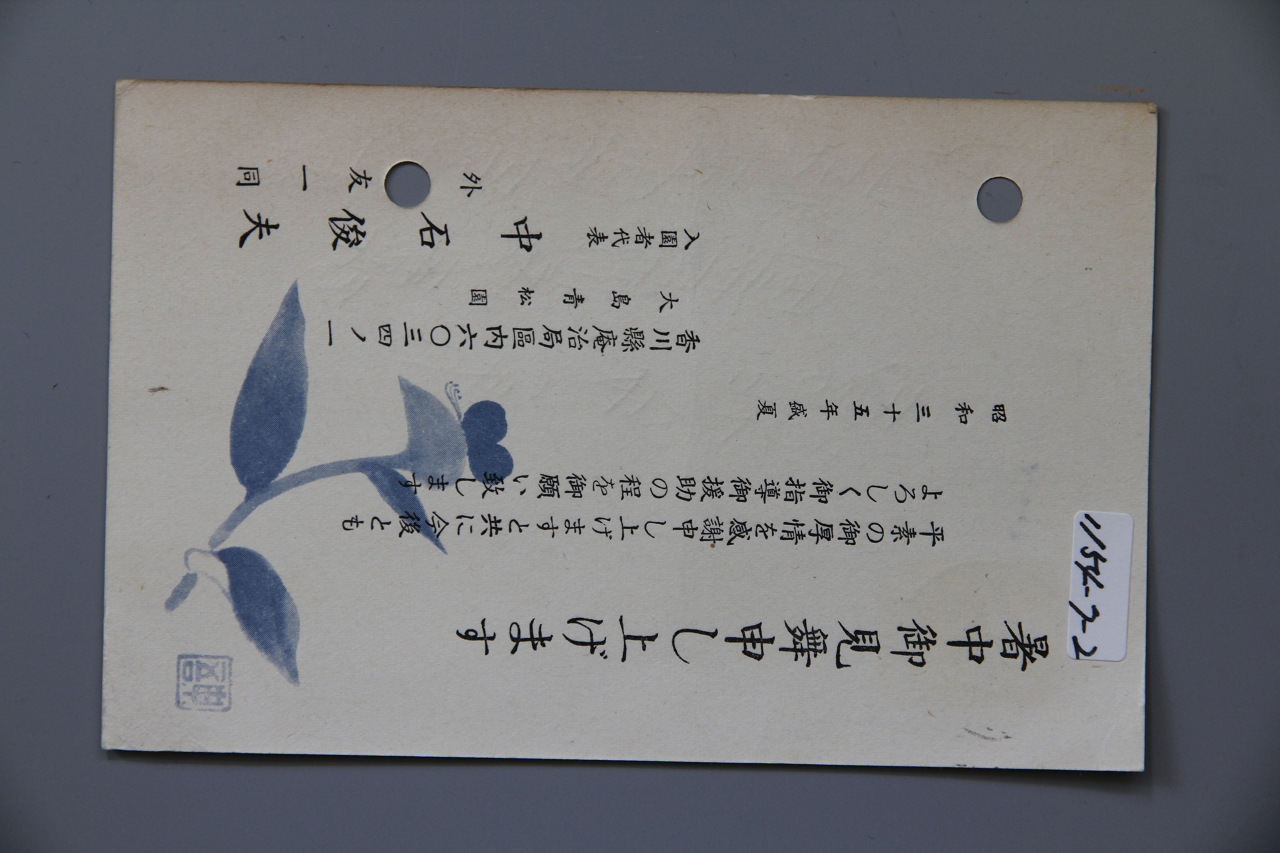 暑中御見舞申し上げます
平素の御厚情を感謝申し上げますと共に今後とも
よろしく御指導御援助の程を御願い致します
昭和三十五年盛夏
香川縣庵治局區内六〇三四ノ一
大島青松園
入園者代表
中石俊夫
外友一同
1154-7-2